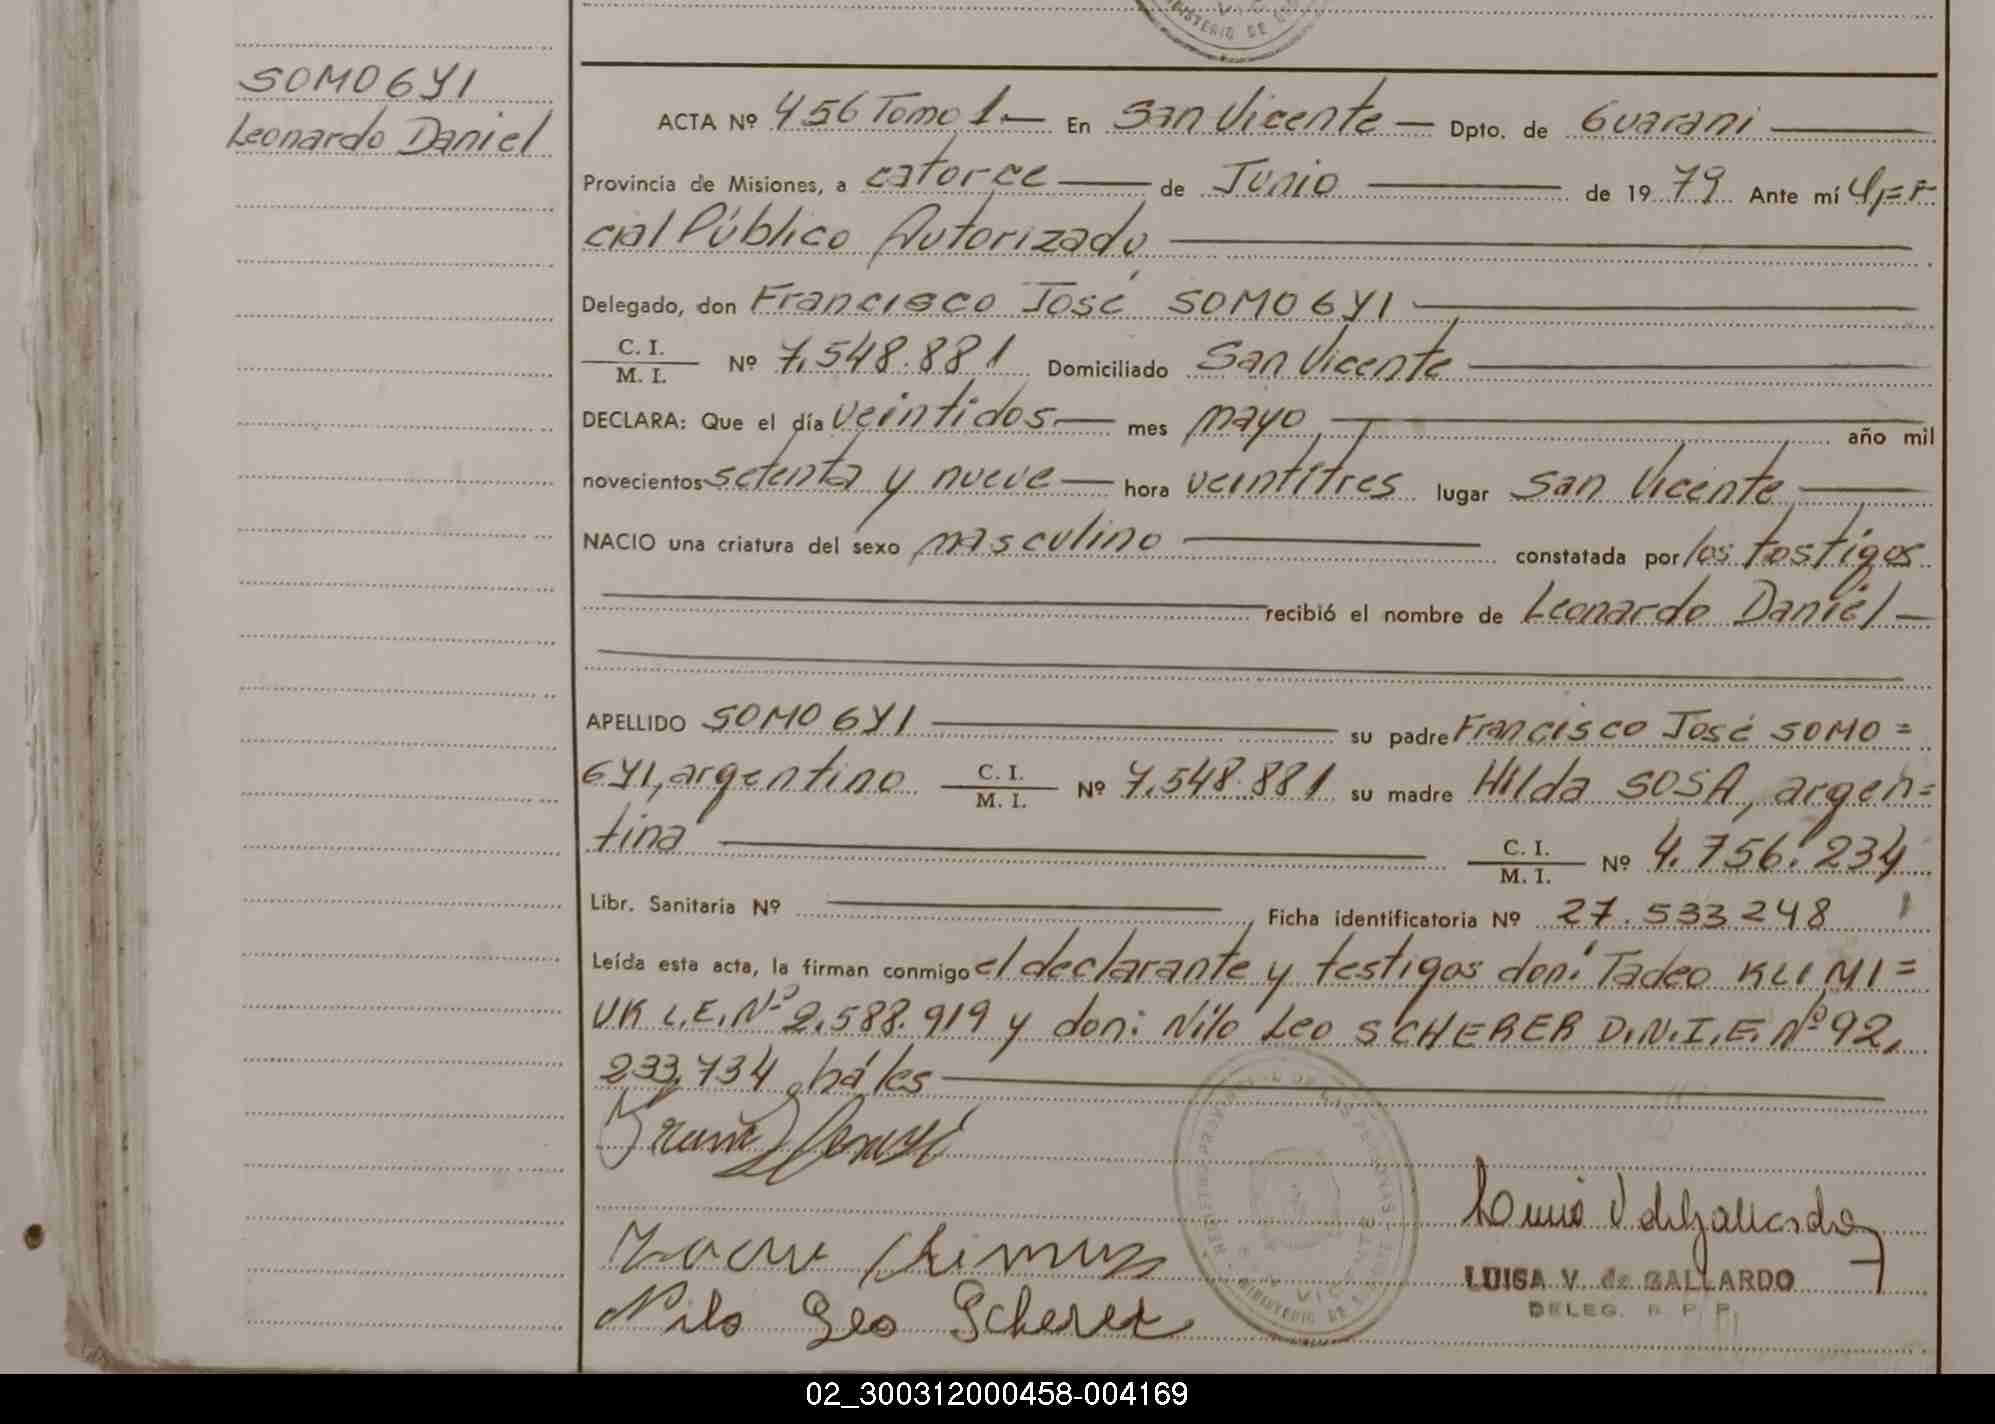 MINISTERIO DE
SOMOGYI
Leonardo Daniel
ACTA Nº 456 Tomo 1.— En San Vicente — Dpto. de Guarani
Provincia de Misiones, a catorce de Junio de 1979 Ante mí
cial Público Autorizado
Delegado, don Francisco José SOMOGYI
C. I.
M. I. Nº 7.548.881 Domiciliado San Vicente
DECLARA: Que el día veintidos mes mayo año mil
novecientos setenta y nueve hora veintitres lugar San Vicente
NACIO una criatura del sexo masculino constatada por los testigos
recibió el nombre de Leonardo Daniel
APELLIDO SOMOGYI su padre Francisco José SOMO=
GYI, argentino C. I. M. I. Nº 7.548.881 su madre Hilda SOSA, argen=
tina C. I. M. I. Nº 4.756.234
Libr. Sanitaria Nº Ficha identificatoria Nº 27.533.248
Leída esta acta, la firman conmigo el declarante y testigos don: Tadeo KLIMI=
UK L.E. Nº 2.588.919 y don: Nilo Leo SCHERER D.N.I.E. Nº 92,
233,734 há́les
Nilo Leo Scherer
LUISA V. de GALLARDO
DELEG. R. P. P.
02_300312000458-004169